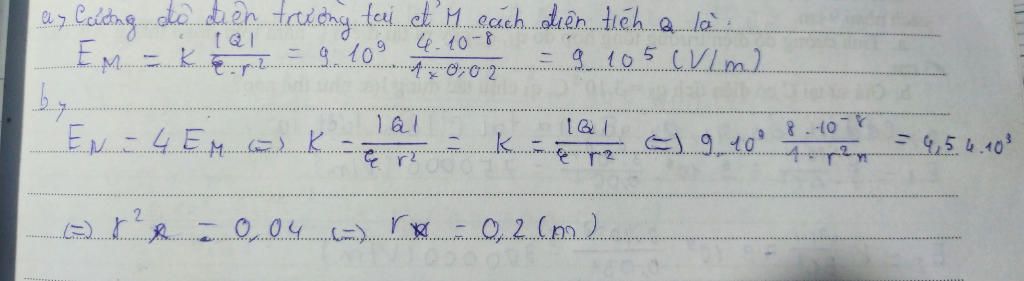 a, Cường độ điện trường tại đ' M cách điện tích Q là:
E_M = K |Q| / ε.r² = 9.10⁹. 4.10⁻⁸ / 1×0,02 = 9.10⁵ (V/m)
b,
E_N = 4 E_M (=) K = |Q| / ε r² = K = |Q| / ε r² (=) 9.10⁹ 8.10⁻⁸ / 1.r²n = 4,54.10³
(=) r² = 0,04 (=) r = 0,2 (m)